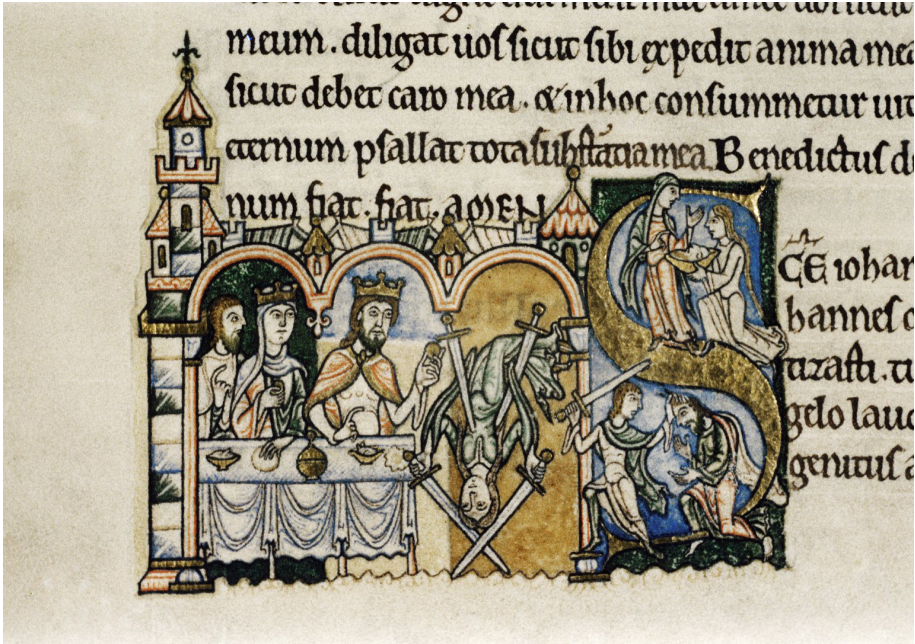 meum. diligat uos sicut sibi expedit anima mea
sicut debet caro mea. & in hoc consummetur uit
eternum psallat tota substācia mea. Benedictus d
num fiat. fiat. AMEN
S CE iohan
hannes
tizasti.
gelo laud
genitus a